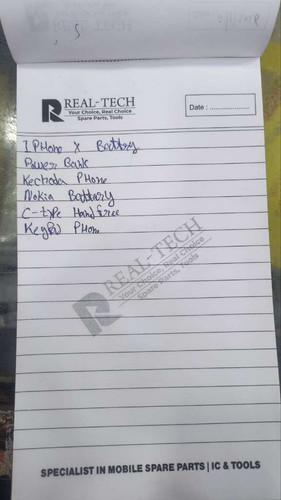 REAL-TECH
Your Choice, Real Choice
Spare Parts, Tools
Date : ......................
IPHone X Battery
Power Bank
Kechoda PHone
Nokia Battery
C-type Handfree
KeyPad PHone
REAL-TECH
Your Choice, Real Choice
Spare Parts, Tools
SPECIALIST IN MOBILE SPARE PARTS | IC & TOOLS